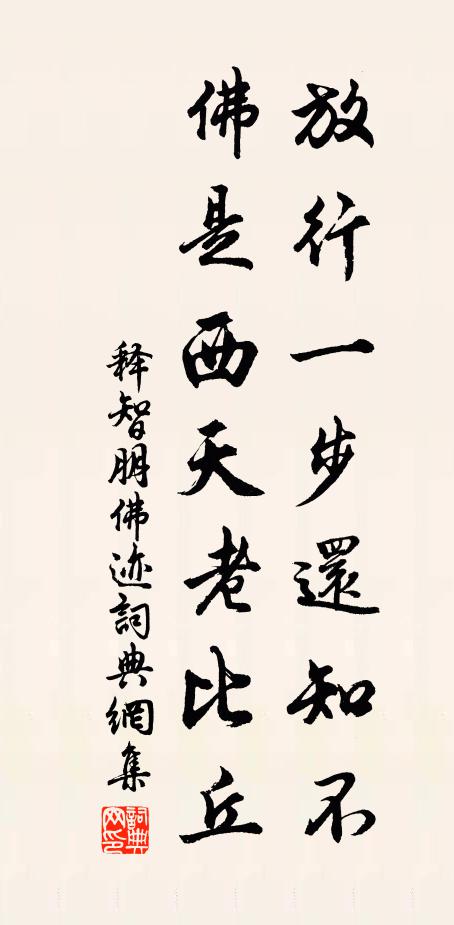 放行一步還知不
佛是西天老比丘
释智朋佛迹詞典網集
詞典网印